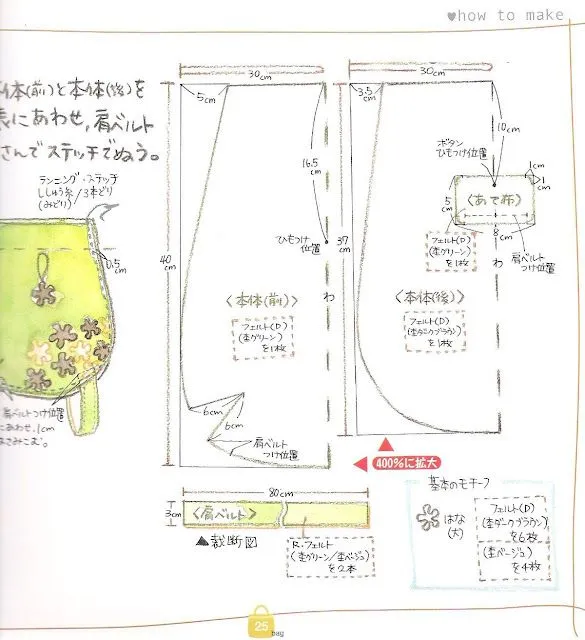 ♥how to make
本体(前)と本体(後)を
表にあわせ、肩ベルト
さんでステッチでぬう。
ランニング・ステッチ
ししゅう糸/3本どり
(みどり)
0.5
cm
肩ベルトつけ位置
にあわせ、1cm
はさみこむ。
30cm
5cm
16.5
cm
ひもつけ
位置
40
cm
わ
〈本体(前)〉
フェルト(D)
(杢グリーン)
を1枚
6cm
6cm
肩ベルト
つけ位置
30cm
3.5
cm
10cm
ボタン
ひもつけ位置
1cm
1
cm
5
cm
〈あて布〉
8cm
フェルト(D)
(杢グリーン)
を1枚
わ
肩ベルト
つけ位置
37
cm
〈本体(後)〉
フェルト(D)
(杢ダークブラウン)
を1枚
400%に拡大
80cm
3cm
〈肩ベルト〉
▲裁断図
R・フェルト
(杢グリーン/杢ベージュ)
を2本
基本のモチーフ
はな
(大)
フェルト(D)
(杢ダークブラウン)
を6枚
(杢ベージュ)
を4枚
25
bag